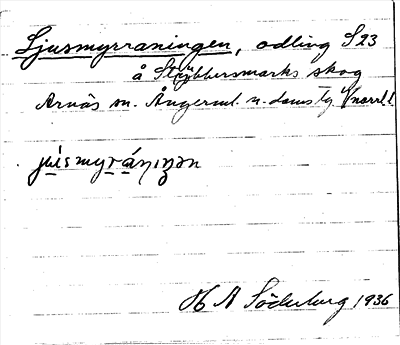 Ljusmyrraningen, odling S23
å Stybbersmarks skog
Arnäs sn. Ångerml. n. domsbg. V/norrl. l.
jʉ́smyrániŋən
H A Söderburg 1936